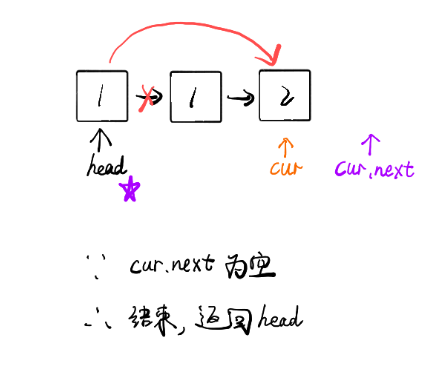 1 1 2
head cur cur.next
∵ cur.next 为空
∴ 结束, 返回 head